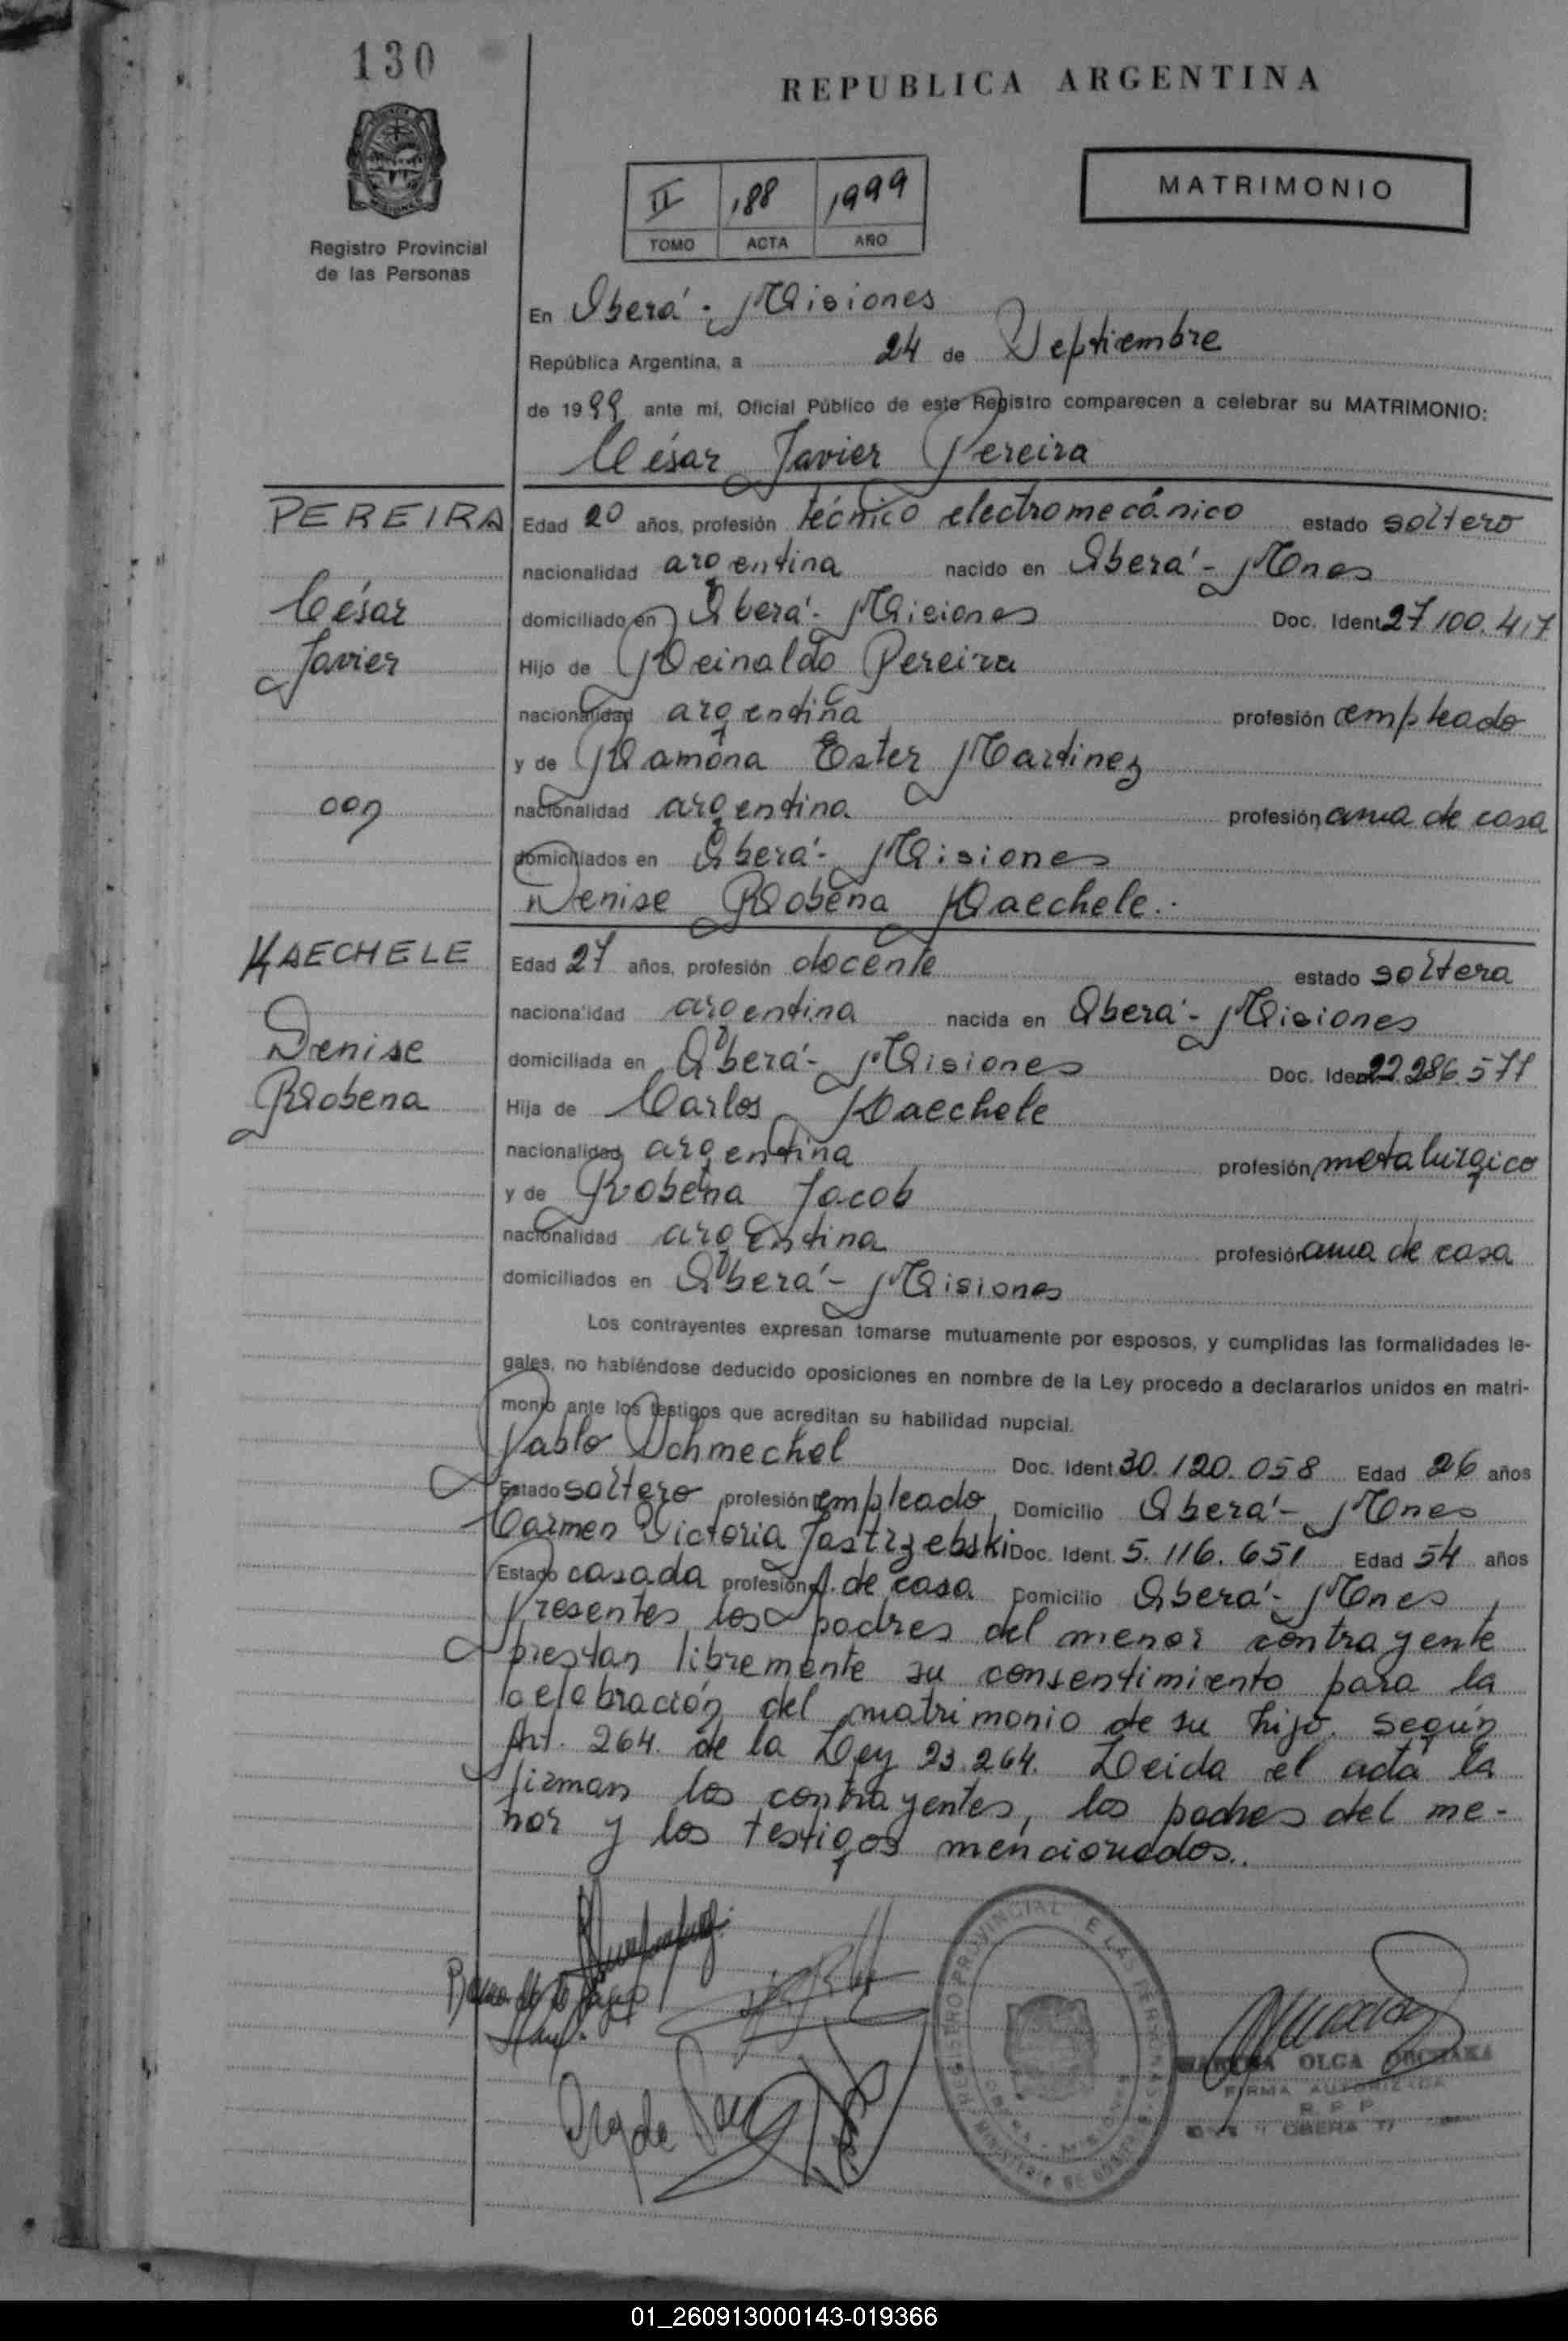 130
REPUBLICA ARGENTINA
II 188 1999
TOMO ACTA AÑO
MATRIMONIO
Registro Provincial
de las Personas
En Oberá - Misiones
República Argentina, a 24 de Septiembre
de 1999 ante mi, Oficial Público de este Registro comparecen a celebrar su MATRIMONIO:
César Javier Pereira
PEREIRA
Edad 20 años, profesión técnico electromecánico estado soltero
nacionalidad argentina nacido en Oberá - Mnes
César
domiciliado en Oberá - Misiones Doc. Ident 27.100.417
Javier
Hijo de Reinaldo Pereira
nacionalidad argentina profesión empleado
y de Ramona Ester Martinez
con
nacionalidad argentina profesión ama de casa
domiciliados en Oberá - Misiones
Denise Robena Kaechele.
KAECHELE
Edad 27 años, profesión docente estado soltera
nacionalidad argentina nacida en Oberá - Misiones
Denise
domiciliada en Oberá - Misiones Doc. Ident 22.286.571
Robena
Hija de Carlos Kaechele
nacionalidad argentina profesión metalúrgico
y de Robena Jacob
nacionalidad argentina profesión ama de casa
domiciliados en Oberá - Misiones
Los contrayentes expresan tomarse mutuamente por esposos, y cumplidas las formalidades le-
gales, no habiéndose deducido oposiciones en nombre de la Ley procedo a declararlos unidos en matri-
monio ante los testigos que acreditan su habilidad nupcial.
Pablo Schmechel Doc. Ident. 30.120.058 Edad 26 años
Estado soltero profesión empleado Domicilio Oberá - Mnes
Carmen Victoria Jastrzebski Doc. Ident. 5.116.651 Edad 54 años
Estado casada profesión A. de casa Domicilio Oberá - Mnes
Presentes los padres del menor contrayente
prestan libremente su consentimiento para la
celebración del matrimonio de su hijo. Según
Art. 264. de la Ley 23.264. Leida el acta la
firman los contrayentes, los padres del me-
nor y los testigos mencionados.
REGISTRO PROVINCIAL DE LAS PERSONAS
OBERA - MISIONES
OLGA
FIRMA AUTORIZADA
R P P
OBERA
01_260913000143-019366